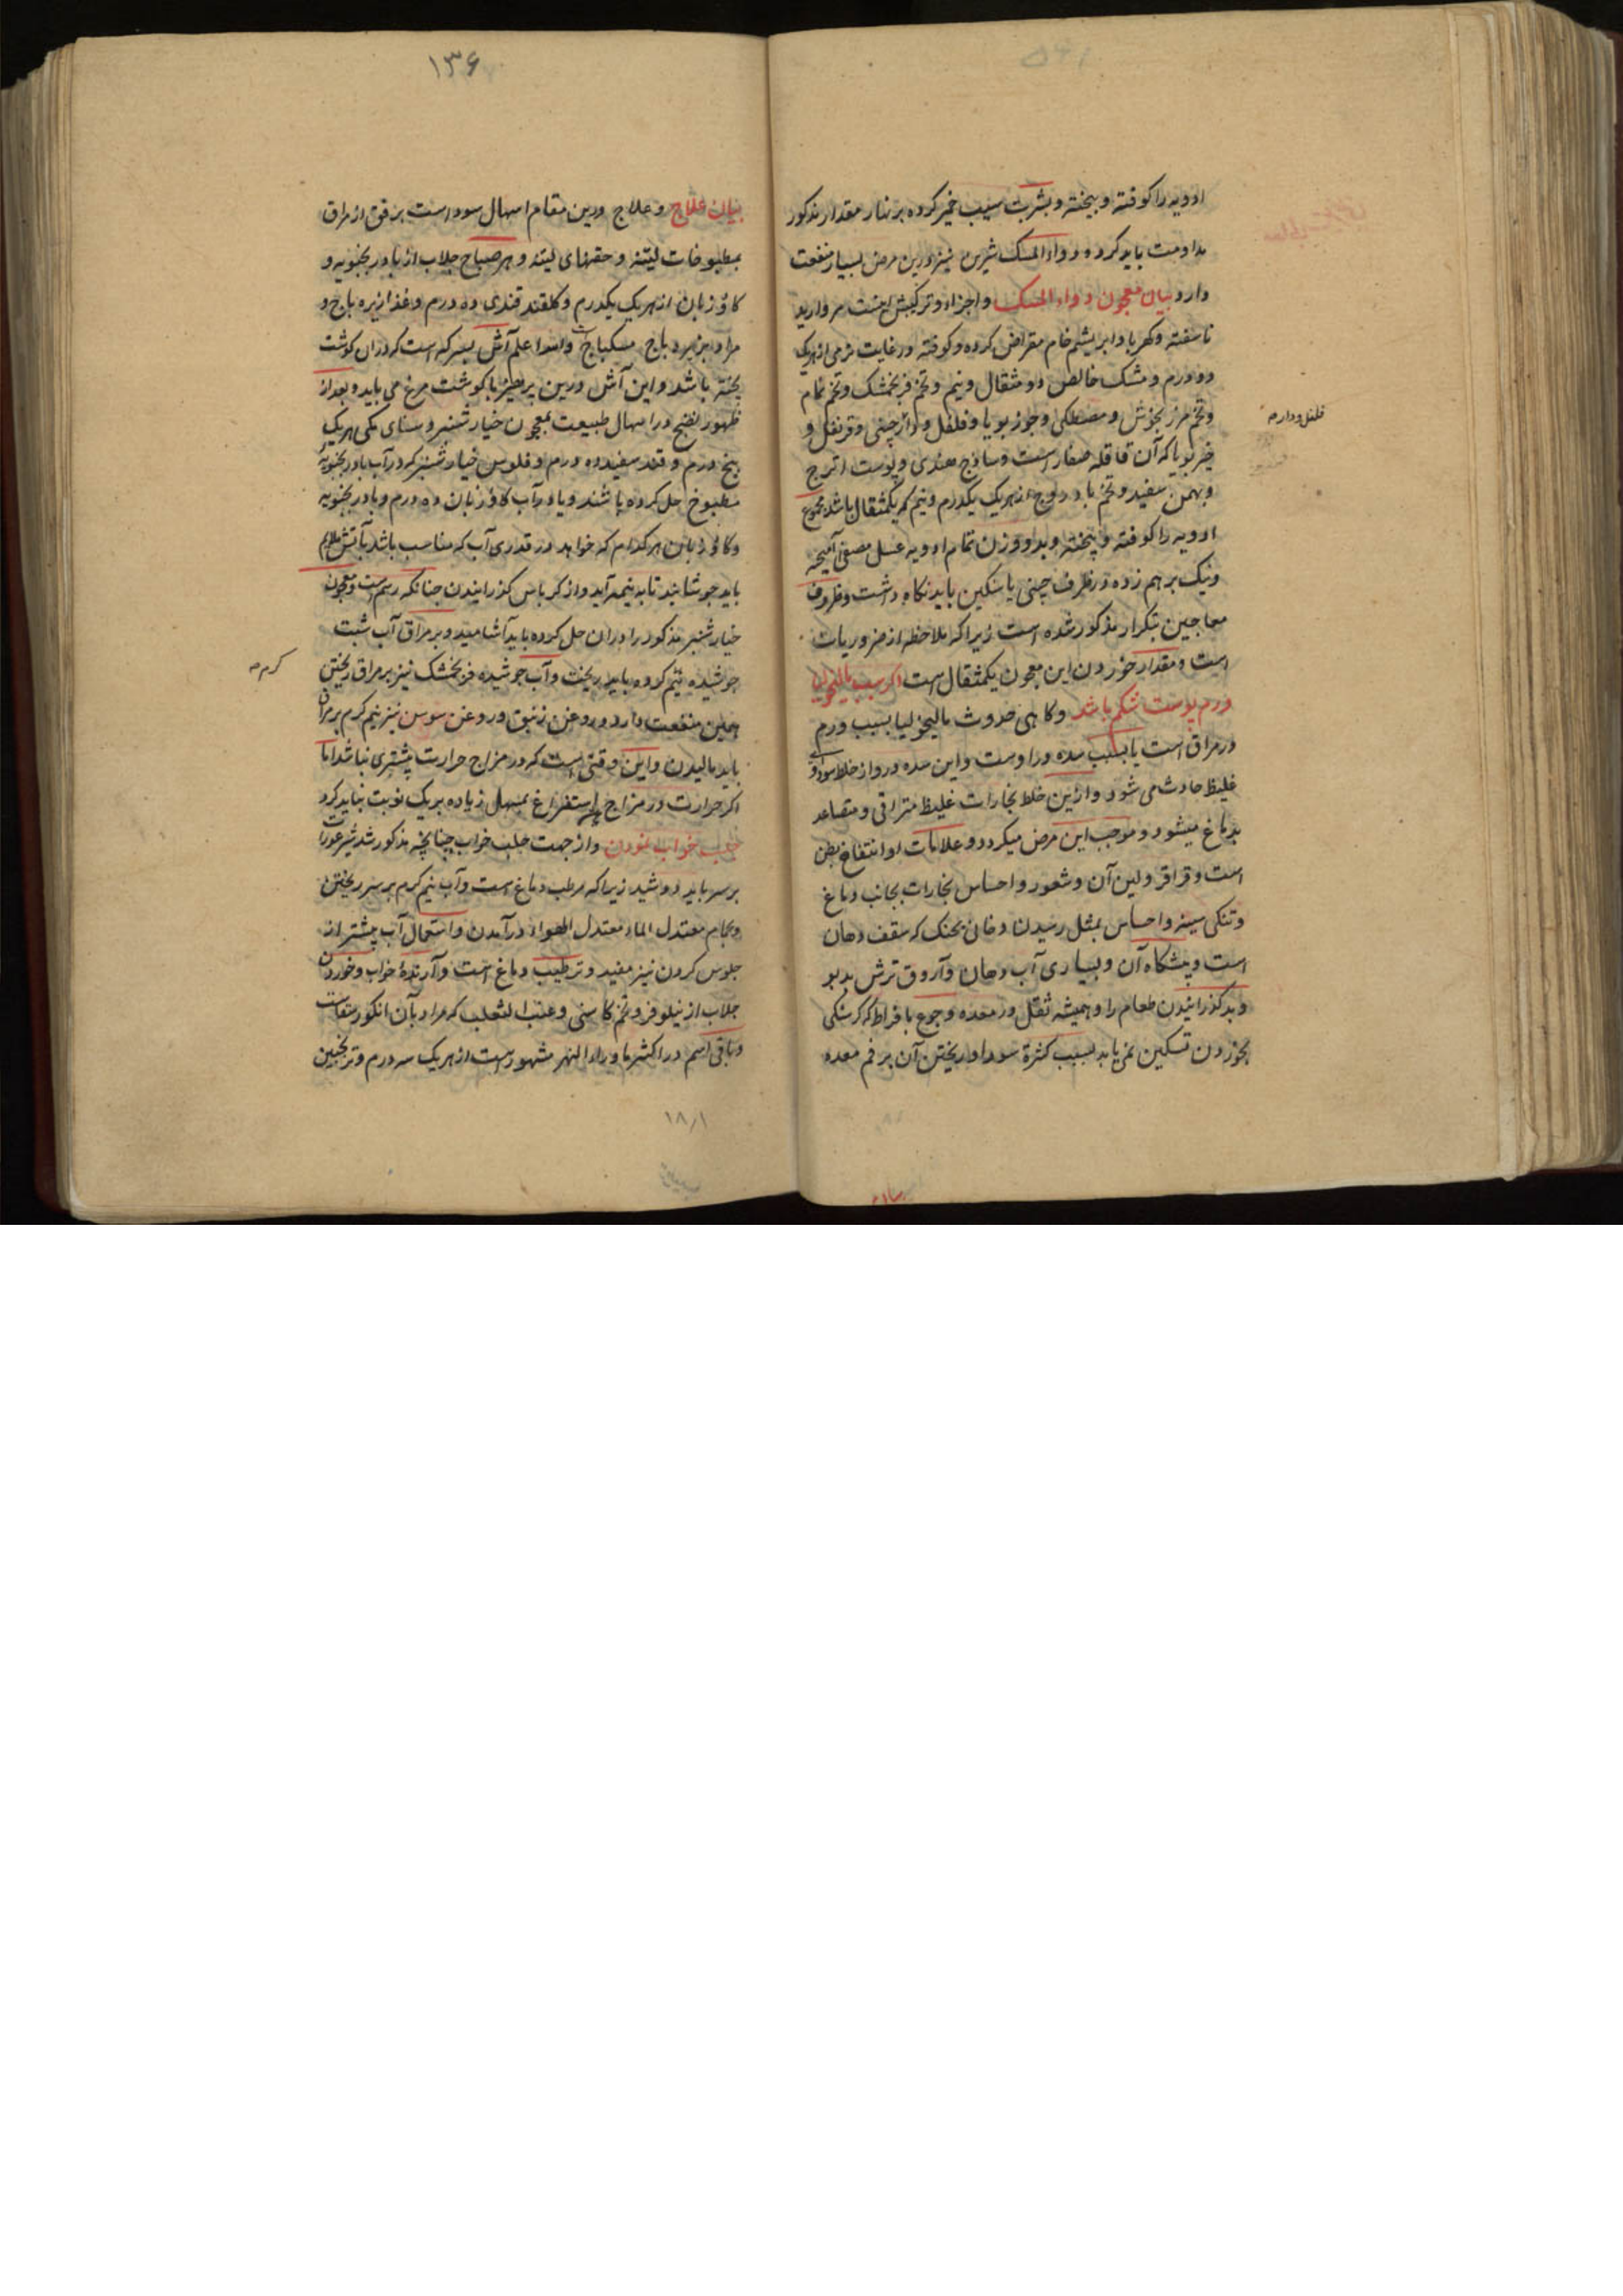 ادویه را کوفته و بیخته و بشربت سیب خمیر کرده بر نهار مقدار مذکور
مداومت باید کرد و دواء المسک شیرین نیز درین مرض بسیار منفعت
دارد بیان معجون دواء المسک و اجزاء و ترکیبش اینست مروارید
ناسفته و کهربا و ابریشم خام مقراض کرده و کوفته در غایت نرمی از هریک
دو درم و مشک خالص دو مثقال و نیم و تخم فرنجمشک و تخم نمام
و تخم مرزنجوش و مصطکی و جوز بویا و فلفل و دارچینی و قرنفل و
خیر بویا که آن قاقله صغار است و ساذج هندی و پوست اترج
و بهمن سفید و تخم بادروج از هریک یکدرم و نیم که یکمثقال باشد مجموع
ادویه را کوفته و بیخته و بدو وزن تمام ادویه عسل مصفی آمیخته
و نیک برهم زده در ظرف چینی یا سنگین باید نگاه داشت و ظروف
معاجین بتکرار مذکور شده است زیرا که ملاحظه از ضروریات
است و مقدار خوردن این معجون یکمثقال است اگر سبب مالیخولیا
ورم پوست شکم باشد و کاهی حدوث مالیخولیا بسبب ورم
در مراق است یا بسبب سده در اوست و این سده درو از خلط سوداوی
غلیظ حادث می شود و از این خلط بخارات غلیظ متراقی و متصاعد
بدماغ میشود و موجب این مرض میکردد و علامات او انتفاخ بطن
است و قراقر و لین آن و شعور و احساس بخارات بجانب دماغ
و تنکی سینه و احساس بمثل رسیدن دخان بحنک که سقف دهان
است و پیشگاه آن و بسیاری آب دهان و آروق ترش بدبو
و بد کذرانیدن طعام را و همیشه ثقل در معده و جوع بافراط که کرسنکی
بخوردن تسکین نمی یابد بسبب کثرة سودا و ریختن آن بر فم معده
فلفل و دار
۱۳۶
بیان علاج و علاج درین مقام اسهال سودا است برفق از مراق
بمطبوخات لینه و حقنهای لینه و هر صباح جلاب از بادرنجبویه و
کاوزبان از هریک یکدرم و کلقند قندی ده درم و غذا زیره باج و
مراد بزیره باج سکباج است و اسدا علم آش بسرکه است که در ان کوشت
پخته باشد و این آش درین پرهیز با کوشت مرغ می باید و بعد از
ظهور نضج در اسهال طبیعت بمعجون خیارشنبر و سنای مکی هریک
پنج درم و قند سفید ده درم و فلوس خیارشنبر که در آب بادرنجبویه
مطبوخ حل کرده باشند و یا در آب کاوزبان ده درم و بادرنجبویه
و کاوزبان هر کدام که خواهد در قدری آب که مناسب باشد بآتش ملایم
باید جوشانید تا به نیمه آید و از کرباس کذرانیدن چنانکه رسم است و معجون
خیارشنبر مذکور را در ان حل کرده باید آشامید و بر مراق آب شبت
جوشیده نیم کرده باید ریخت و آب جوشیده فرنجمشک نیز بر مراق ریختن
همین منفعت دارد و روغن زنبق و روغن سوسن نیز نیم کرم بر مراق
باید مالیدن و این وقتی است که در مزاج حرارت بیشتری نباشد اما
اکر حرارت در مزاج استفراغ بمسهل زیاده بر یک نوبت نباید کرد
جلب خواب نمودن و از جهت جلب خواب چنانچه مذکور شد شیر عورات
بر سر باید دوشید زیرا که مرطب دماغ است و آب نیم کرم بر سر ریختن
و بحمام معتدل الماء معتدل الهواء درآمدن و استعمال آب بیشتر از
جلوس کردن نیز مفید و ترطیب دماغ است و آرندهٔ خواب و خوردن
جلاب از نیلوفر و تخم کاسنی و عنب الثعلب که مراد بآن انکور است
و باقی اسم در اکثر ماوراءالنهر مشهور است از هریک سه درم و ترنجبین
کرم
۱۸۱